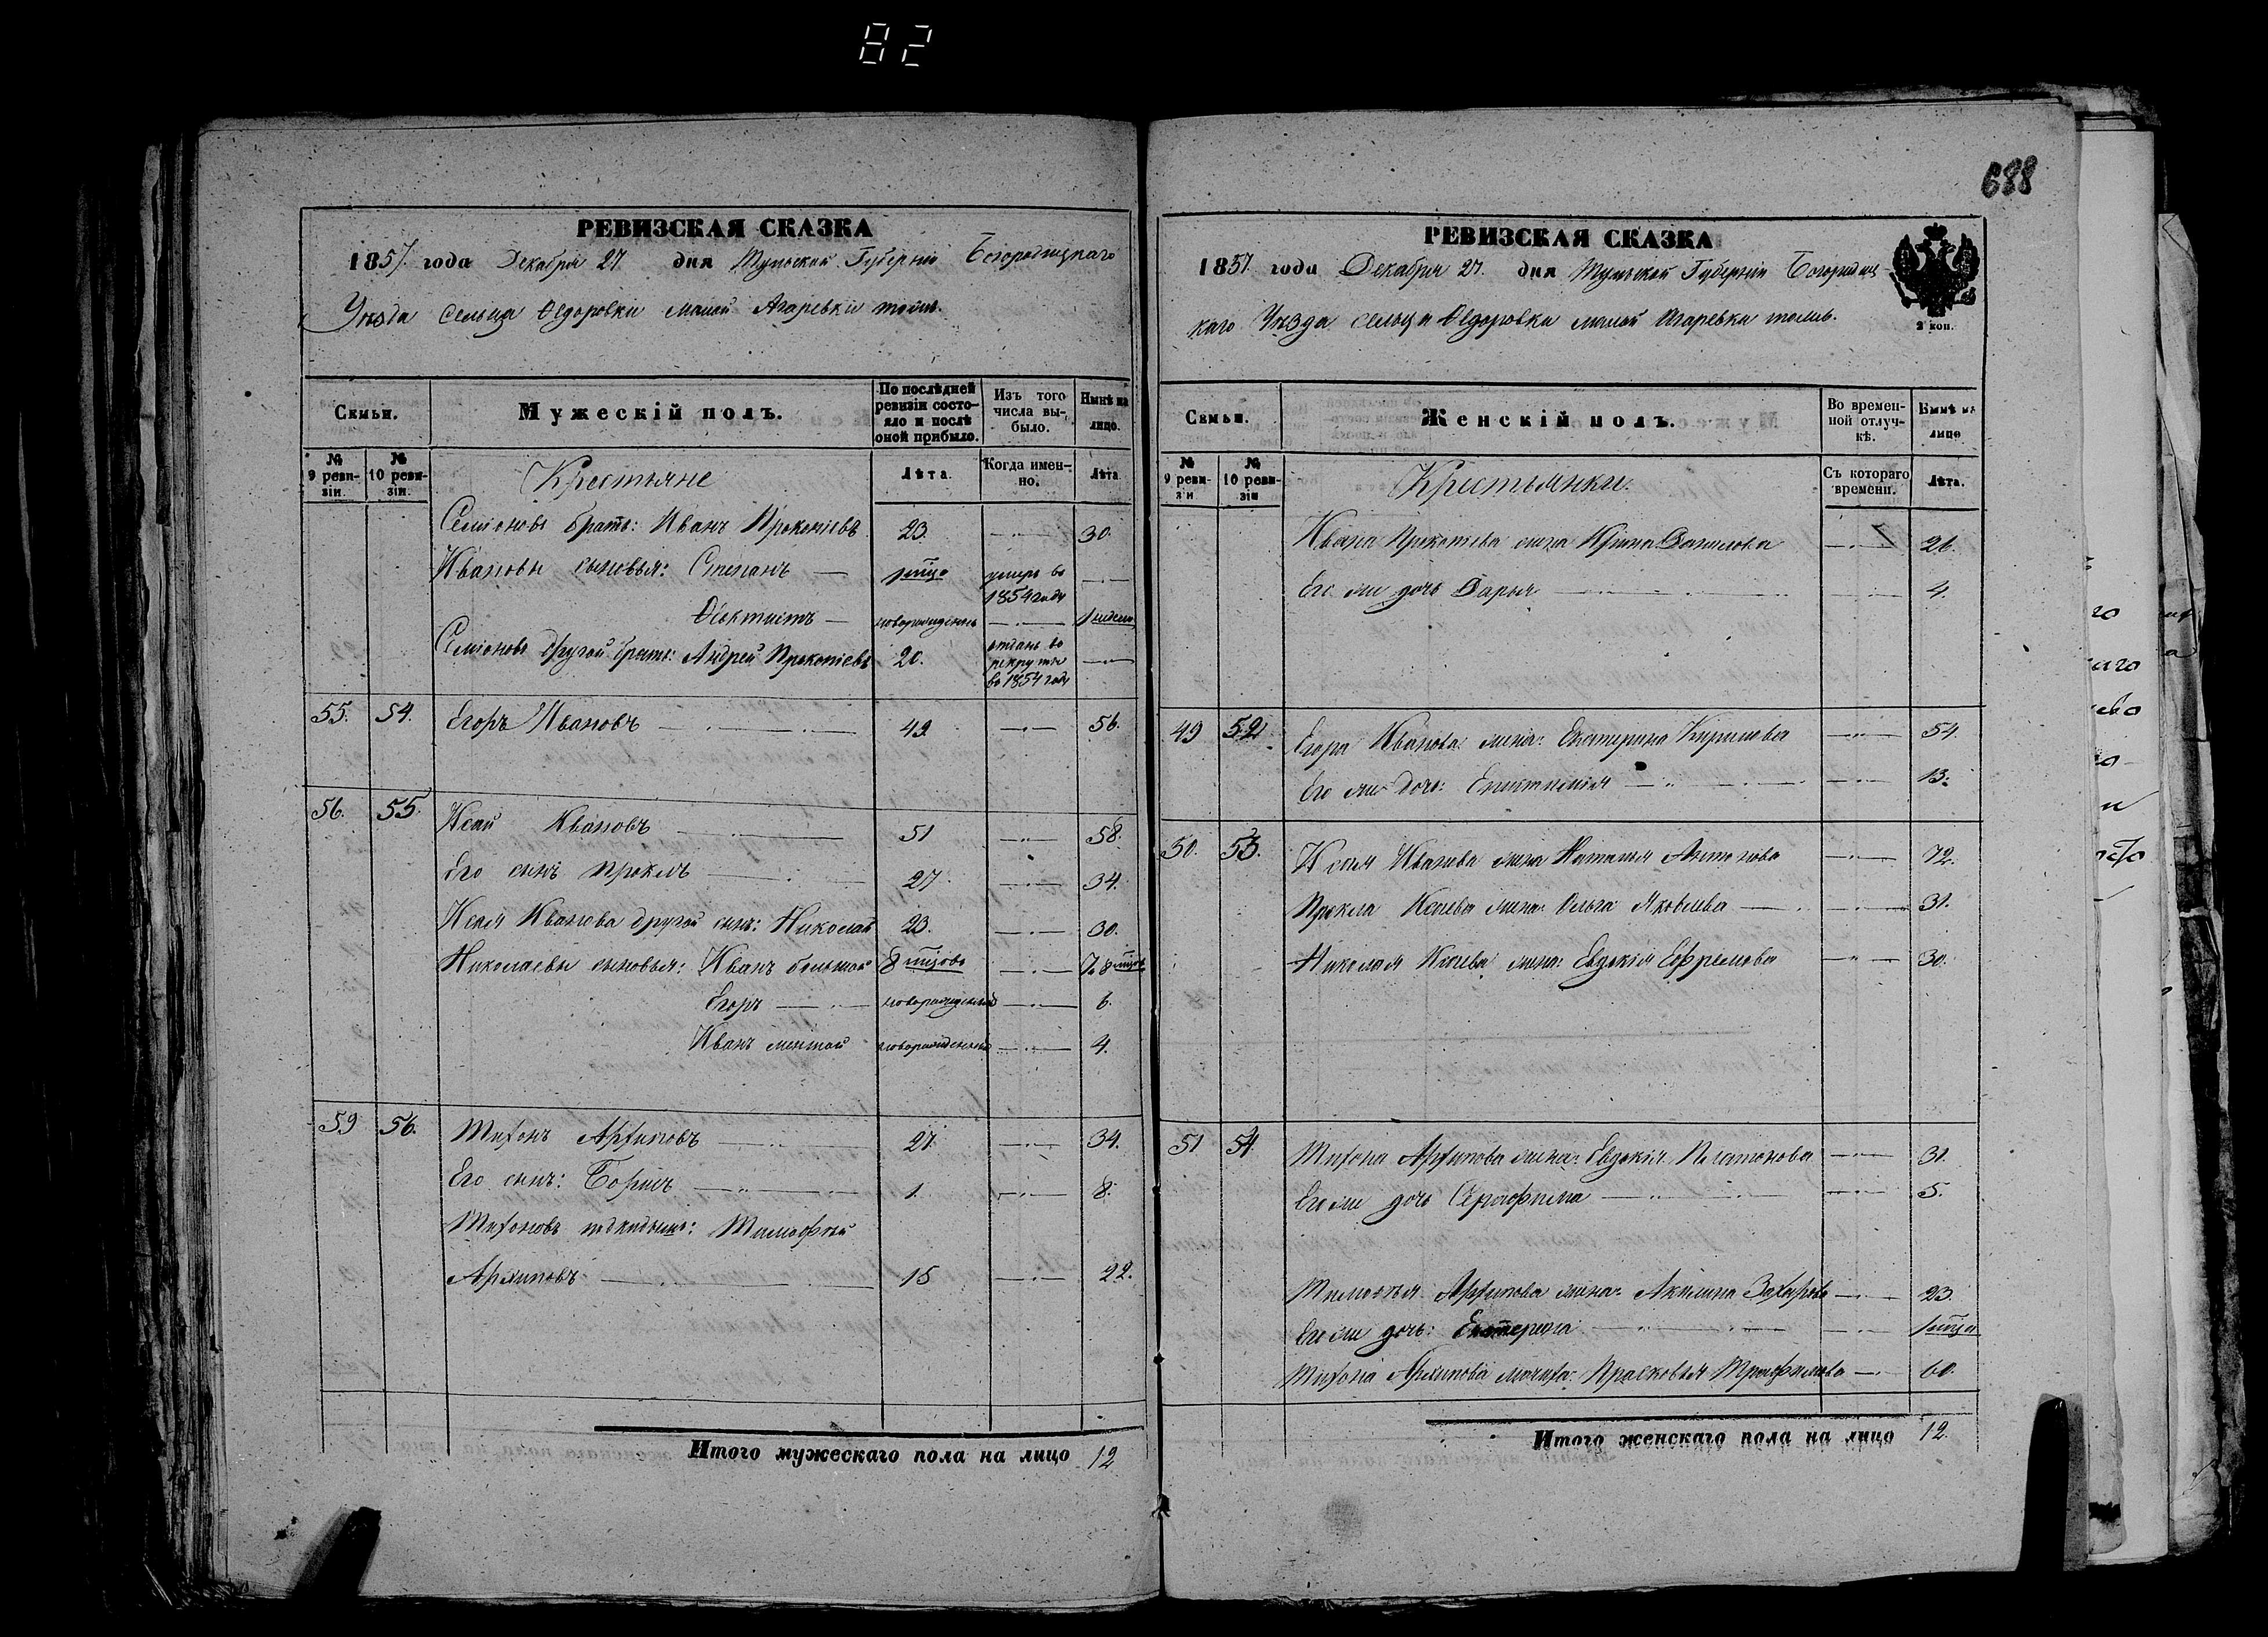 82
688
РЕВИЗСКАЯ СКАЗКА
1857. года Декабря 27 дня Тульской Губерніи Богородицкаго
Уѣзда Сельца Ѳедоровки малой Агаревки тожъ.
Семьи.
Мужескій полъ.
По послѣдней ревизіи состояло и послѣ оной прибыло.
Изъ того числа выбыло.
Нынѣ на лицо.
№ 9 ревизіи.
№ 10 ревизіи.
Крестьяне
Лѣта.
Когда именно.
Лѣта
Семіоновъ братъ: Иванъ Прокопіевъ 23. —·— 30.
Ивановы сыновья: Степанъ — умеръ въ 1854 году —·—
Ѳеоктистъ — новорожденъ —·— 1 недели
Семіоновъ другой братъ: Андрей Прокопіевъ 20. отданъ въ рекруты въ 1854 году —·—
55. 54. Егоръ Ивановъ —·— 49 —·— 56.
56. 55. Исай Ивановъ — 51 —·— 58.
Его сынъ Проклъ —·— 27 —·— 34.
Исая Иванова другой сынъ: Николай 23. —·— 30.
Николаевы сыновья: Иванъ большой 8 мцовъ —·— 7. 8 мцовъ
Егоръ —·— новорожденный —·— 6.
Иванъ меньшой новорожденный —·— 4.
59 56. Тихонъ Архиповъ —·— 27. —·— 34.
Его сынъ: Борисъ —·— 1. —·— 8.
Тихоновъ Тимофей
Архиповъ —·— 15 —·— 22.
Итого мужескаго пола на лицо 12
РЕВИЗСКАЯ СКАЗКА
1857 года Декабря 27. дня Тульской Губерніи Богородиц-
2 коп.
каго Уѣзда сельца Ѳедоровки малой Агаревки тожъ.
Семьи.
Женскій полъ.
Во временной отлучкѣ.
Нынѣ на лицо
№ 9 ревизіи
№ 10 ревизіи
Крестьянки.
Съ котораго времени.
Лѣта.
Ивана Прокопіева жена Ирина Данилова —·— 26.
Его же дочь Дарья —·— 4.
49 52 Егора Иванова жена: Екатерина Кирилова —·— 54.
Его же дочь: Епистимія —·— 13.
50. 53. Исая Иванова жена Наталья Антонова —·— 72.
Прокла Исаева жена: Ольга Яковлева —·— 31.
Николая Исаева жена: Евдокія Ефремова —·— 30.
51 54 Тихона Архипова жена: Евдокія Платонова —·— 31.
Его же дочь Серафима —·— 5.
Тимофея Архипова жена: Акилина Захарова —·— 23.
Его же дочь: Екатерина —·—
Тихона Архипова мачиха: Прасковья Трофимова —·— 60.
Итого женскаго пола на лицо 12.